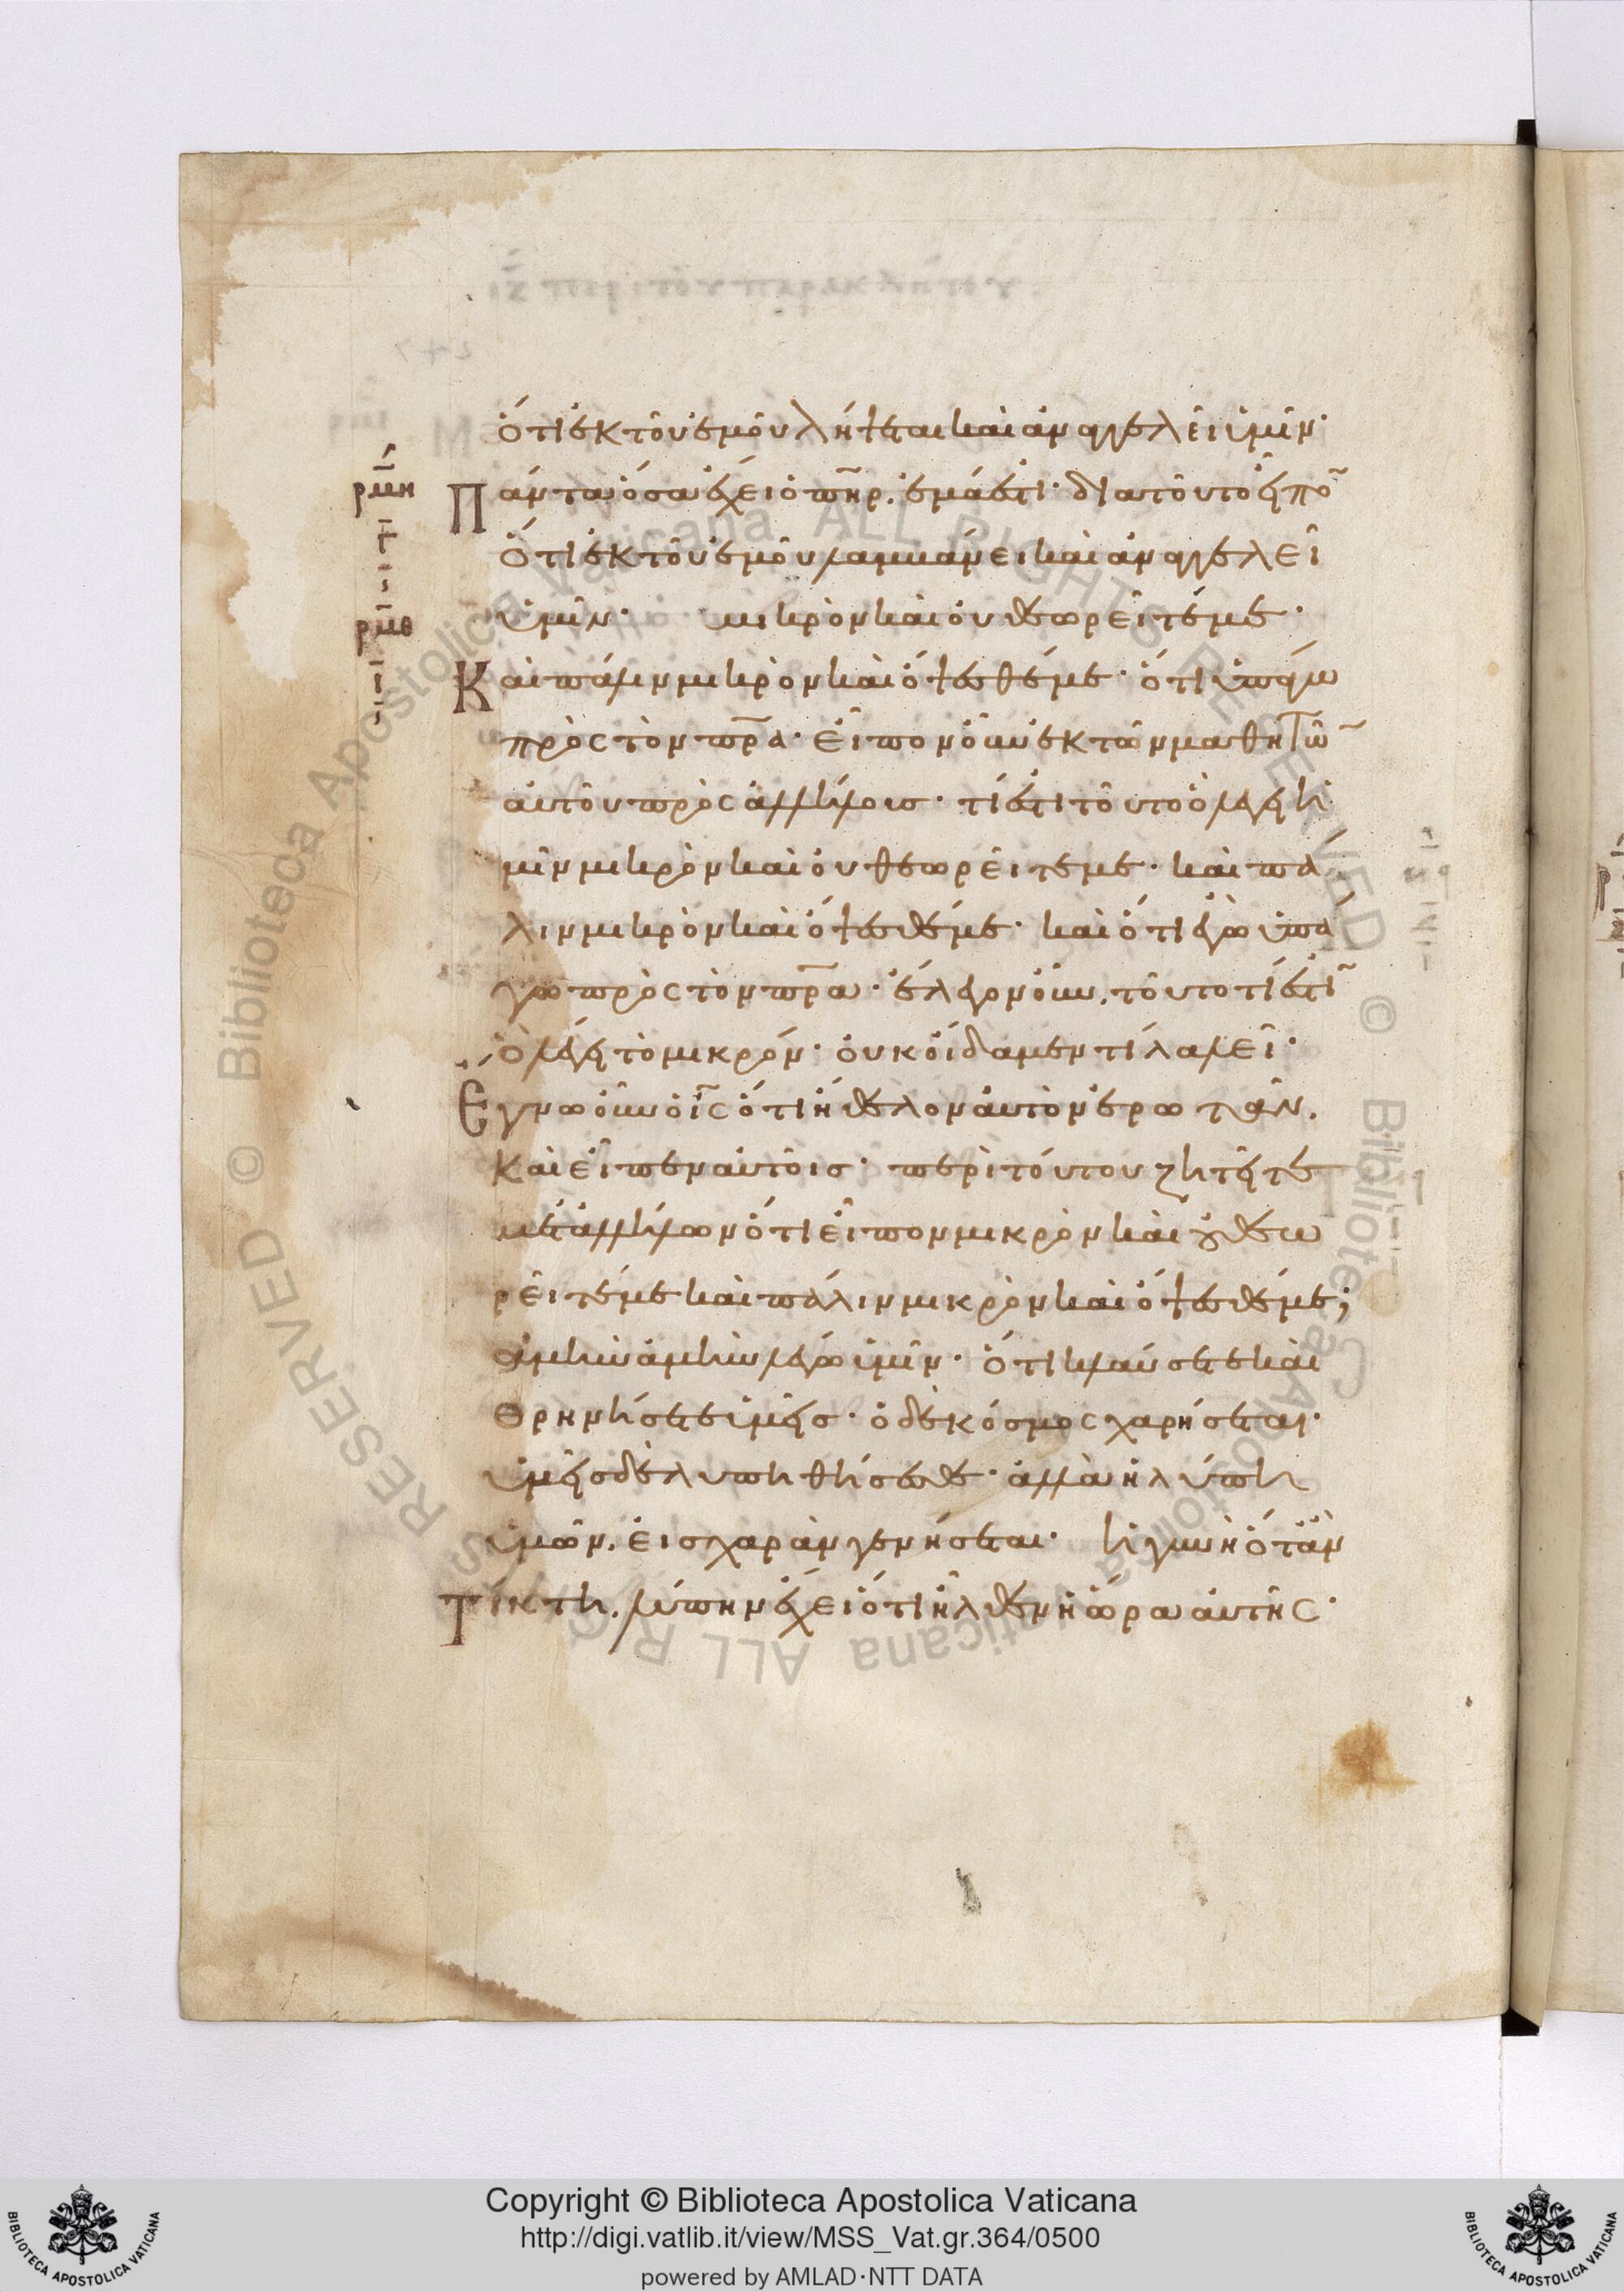 ὅτι ἐκ τοῦ ἐμοῦ λήψεται καὶ ἀναγγελεῖ ὑμῖν·
ρμη
Πάντα ὅσα ἔχει ὁ πηρ. ἐμά ἐστι· διατοῦτο εἶπο
ὅτι ἐκ τοῦ ἐμοῦ λαμβάνει καὶ ἀναγγελεῖ
ρμθ
ὑμῖν· μικρὸν καὶ οὐ θεωρεῖτέ με·
Καὶ πάλιν μικρὸν καὶ ὄψεσθέ με· ὅτι ὑπάγω
πρὸς τὸν πρα· εἶπον οὖν ἐκ τῶν μαθητῶ
αὐτοῦ πρὸς ἀλλήλους· τί ἐστι τοῦτο ὃ λέγει ἡ
μῖν μικρὸν καὶ οὐ θεωρεῖτέ με· καὶ πά
λιν μικρὸν καὶ ὄψεσθέ με· καὶ ὅτι ἐγὼ ὑπά
γω πρὸς τὸν πρα· ἔλεγον οὖν. τοῦτο τί ἐστι
ὃ λέγει τὸ μικρόν· οὐκ οἴδαμεν τί λαλεῖ·
Ἔγνω οὖν ὁ ις ὅτι ἤθελον αὐτὸν ἐρωτᾶν.
Καὶ εἶπεν αὐτοῖς· περὶ τούτου ζητεῖτε
μετ ἀλλήλων ὅτι εἶπον μικρὸν καὶ οὐ θεω
ρεῖτέ με καὶ πάλιν μικρὸν καὶ ὄψεσθέ με;
ἀμὴν ἀμὴν λέγω ὑμῖν· ὅτι κλαύσετε καὶ
θρηνήσετε ὑμεῖς· ὁ δὲ κόσμος χαρήσεται·
ὑμεῖς δὲ λυπηθήσεσθε· ἀλλὰ ἡ λύπη
ὑμῶν. εἰς χαρὰν γενήσεται· ἡ γυνὴ ὅταν
Τίκτη. λύπην ἔχει ὅτι ἦλθεν ἡ ὥρα αὐτῆς·
Copyright © Biblioteca Apostolica Vaticana
http://digi.vatlib.it/view/MSS_Vat.gr.364/0500
powered by AMLAD·NTT DATA
BIBLIOTECA APOSTOLICA VATICANA
BIBLIOTECA APOSTOLICA VATICANA